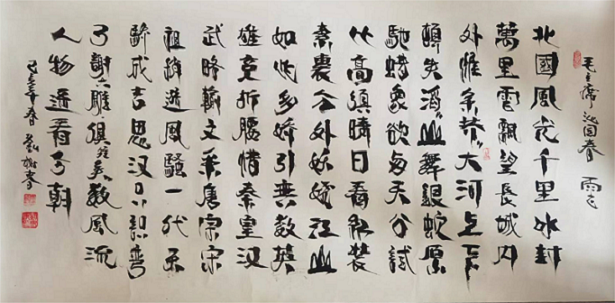 毛主席沁园春 雪
北國風光千里冰封
萬里雪飄望長城内
外惟余莽〃大河上下
頓失滔〃山舞銀蛇原
馳蜡象欲与天公試
比高須晴日看红装
素裹分外妖娆江山
如此多娇引無数英
雄竞折腰惜秦皇汉
武略輸文采唐宗宋
祖稍逊風騷一代天
骄成吉思汉只识弯
弓射大雕俱往矣数風流
人物还看今朝
己亥年春日